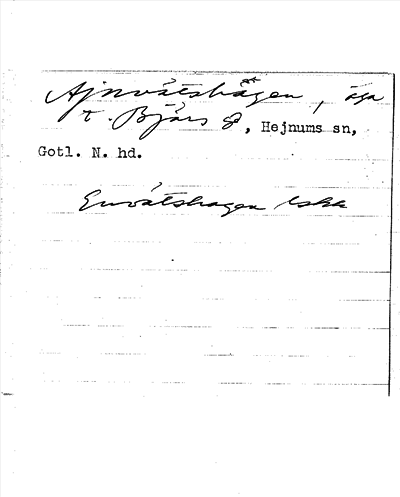 Ajnvätshagen, äga
t. Bjärs g, Hejnums sn,
Gotl. N. hd.
Envätshagen